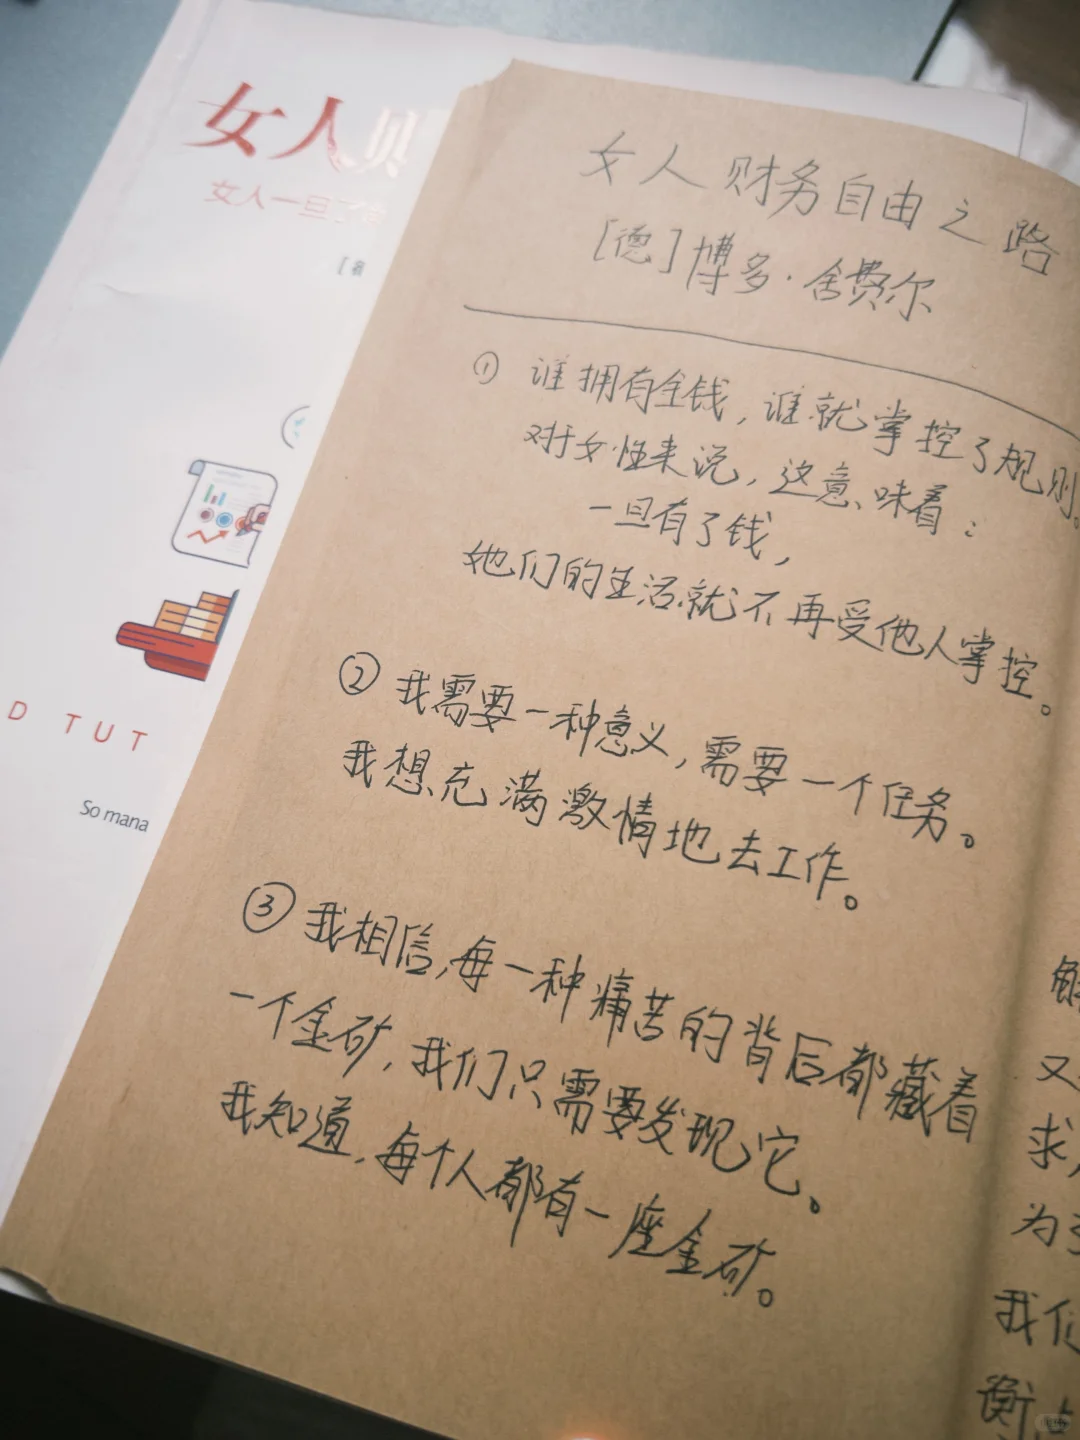 女人财
女人一旦了
D TUT
So mana
女人财务自由之路
[德]博多·舍费尔
① 谁拥有金钱，谁就掌控了规则。
对于女性来说，这意味着：
一旦有了钱，
她们的生活就不再受他人掌控。
② 我需要一种意义，需要一个任务。
我想充满激情地去工作。
③ 我相信，每一种痛苦的背后都藏着
一个金矿，我们只需要发现它。
我知道，每个人都有一座金矿。
解
又
求
为
我们
衡